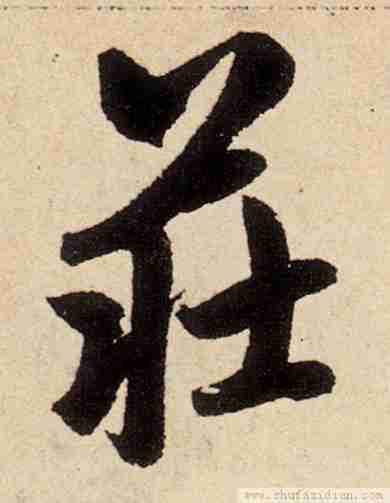 莊
www.shufazidian.com